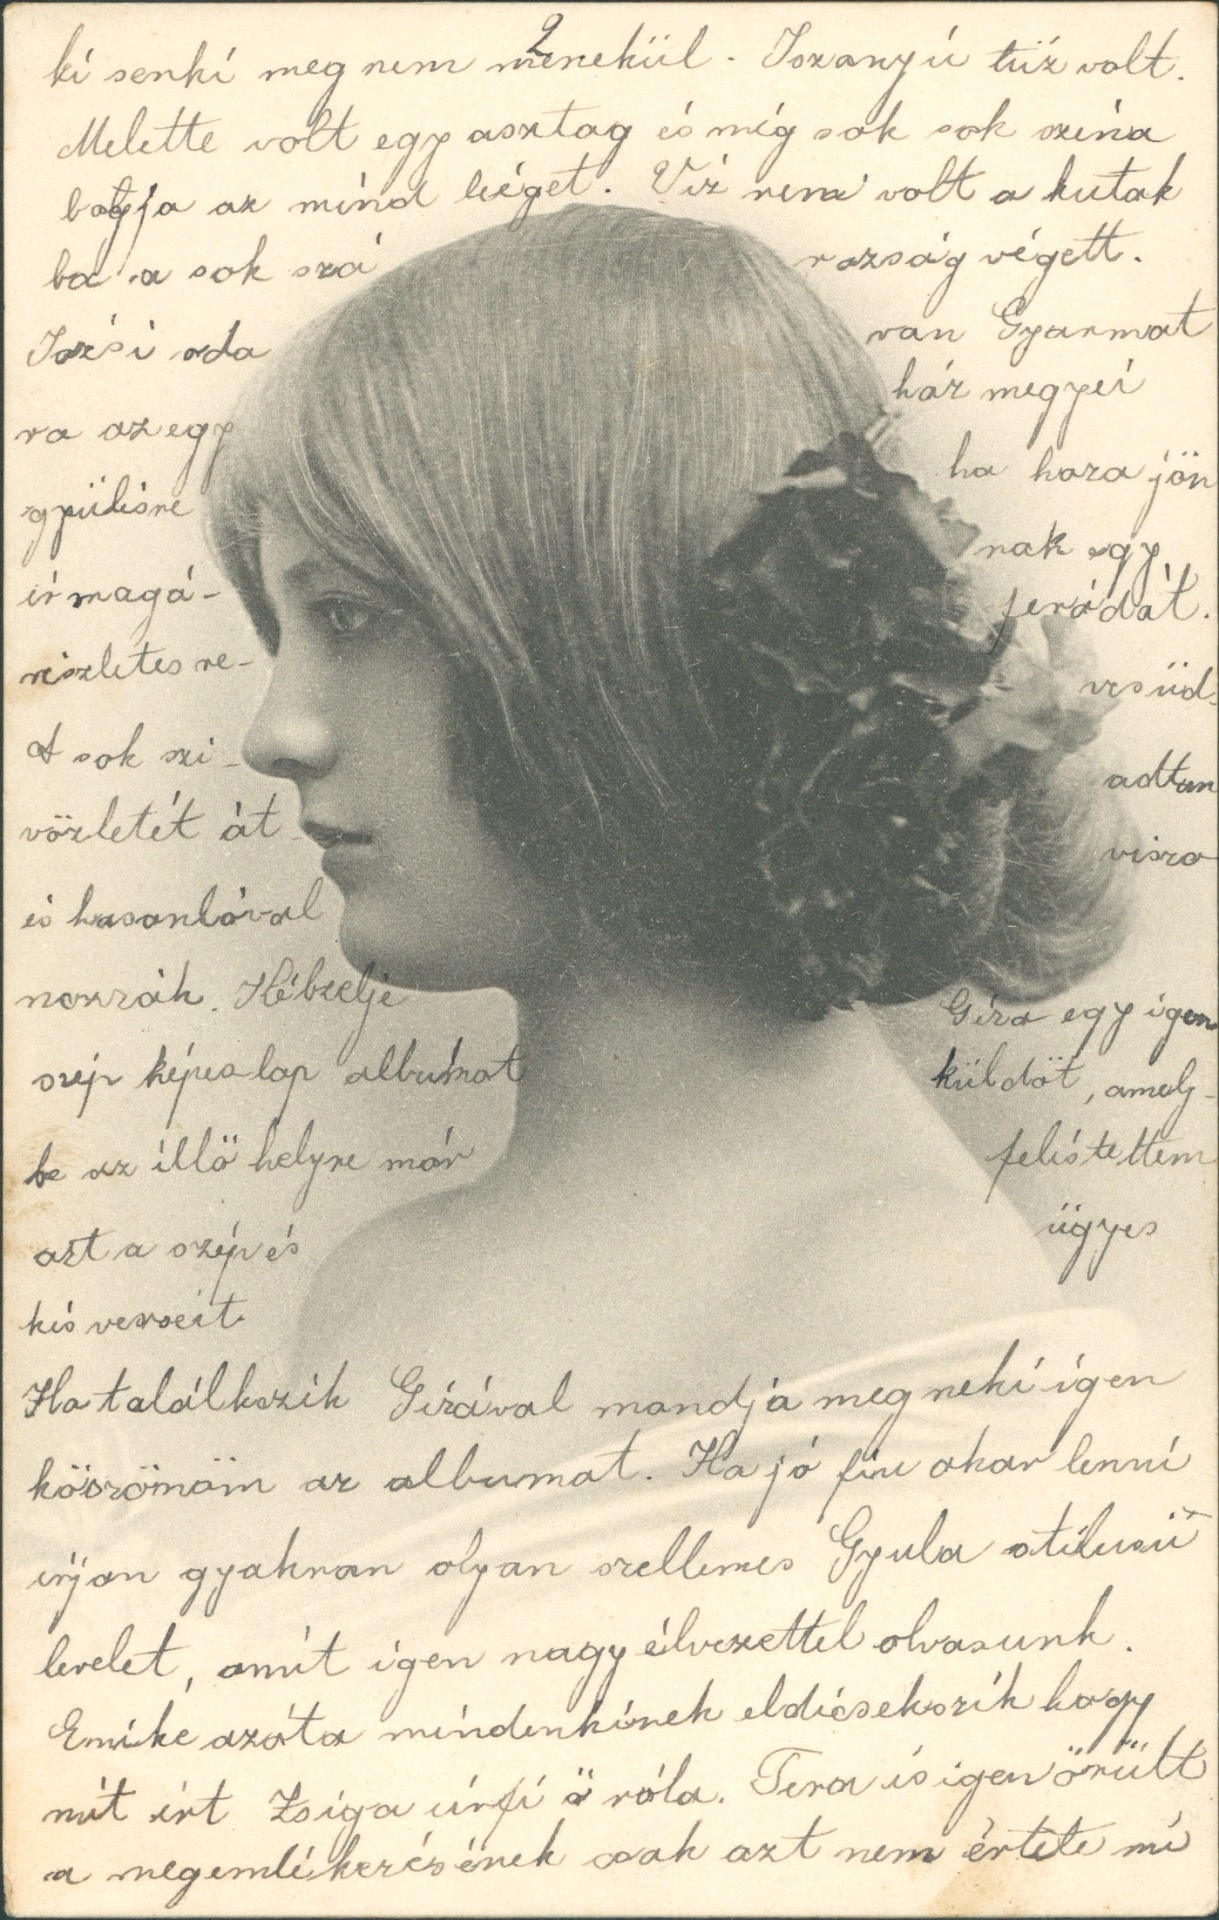 2
ki senki meg nem menekül. Iszanyú tüz volt.
Melette volt egy asztag és míg sok sok széna
bogja az mind leéget. Víz nem volt a kutak
ba a sok szá razság végett.
Józsi oda van Gyarmat
ra az egy ház megyei
gyülésre ha haza jön
ír magá- nak egy
részletes re- ferádát.
A sok szi- vesüd-
vözletét át adtam
és hasanlóval visza
nozzák. Hébzelje Géza egy igen
szép képeslap albumot küldöt, amely-
be az illö helyre már felístettem
azt a szép és ügyes
kis verseit
Ha találkozik Gézával mandja meg neki igen
köszönöm az albumat. Ha jó fiu akar lenni
írjan gyakran olyan szellemes Gyula stílusú
levelet, amit igen nagy élvezettel olvasunk.
Emike azóta mindenkinek eldicsekszik hogy
mit írt Zsiga úrfi ö róla. Tera is igen örült
a megemlékezésének csak azt nem értete mi